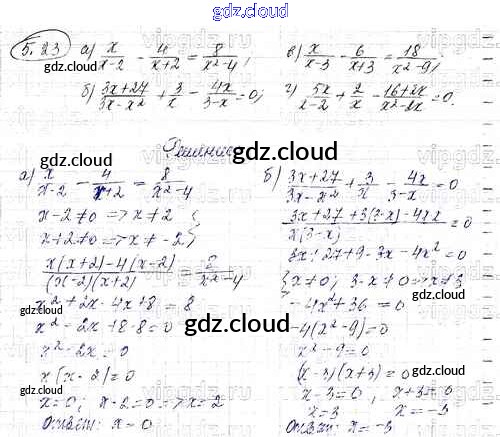 gdz.cloud
5.23 а) x/(x-2) - 4/(x+2) = 8/(x²-4); в) x/(x-3) - 6/(x+3) = 18/(x²-9);
б) (3x+27)/(3x-x²) + 3/x - 4x/(3-x) = 0; г) 5x/(x-2) + 2/x - (16+2x)/(x²-2x) = 0.
Решение
gdz.cloud
а) x/(x-2) - 4/(x+2) = 8/(x²-4)
x-2≠0 => x≠2
x+2≠0 => x≠-2
(x(x+2)-4(x-2))/((x-2)(x+2)) = 8/(x²-4)
x²+2x-4x+8=8
x²-2x+8-8=0
x²-2x=0
x(x-2)=0
x=0; x-2=0 => x=2
Ответ: x=0
б) (3x+27)/(3x-x²) + 3/x - 4x/(3-x) = 0
(3x+27+3(3-x)-4x·x)/(x(3-x)) = 0
3x+27+9-3x-4x²=0
{x≠0; 3-x≠0 => x≠3
-4x²+36=0
-4(x²-9)=0
x²-9=0
(x-3)(x+3)=0
x-3=0; x+3=0
x=3 x=-3
Ответ: x=-3
gdz.cloud